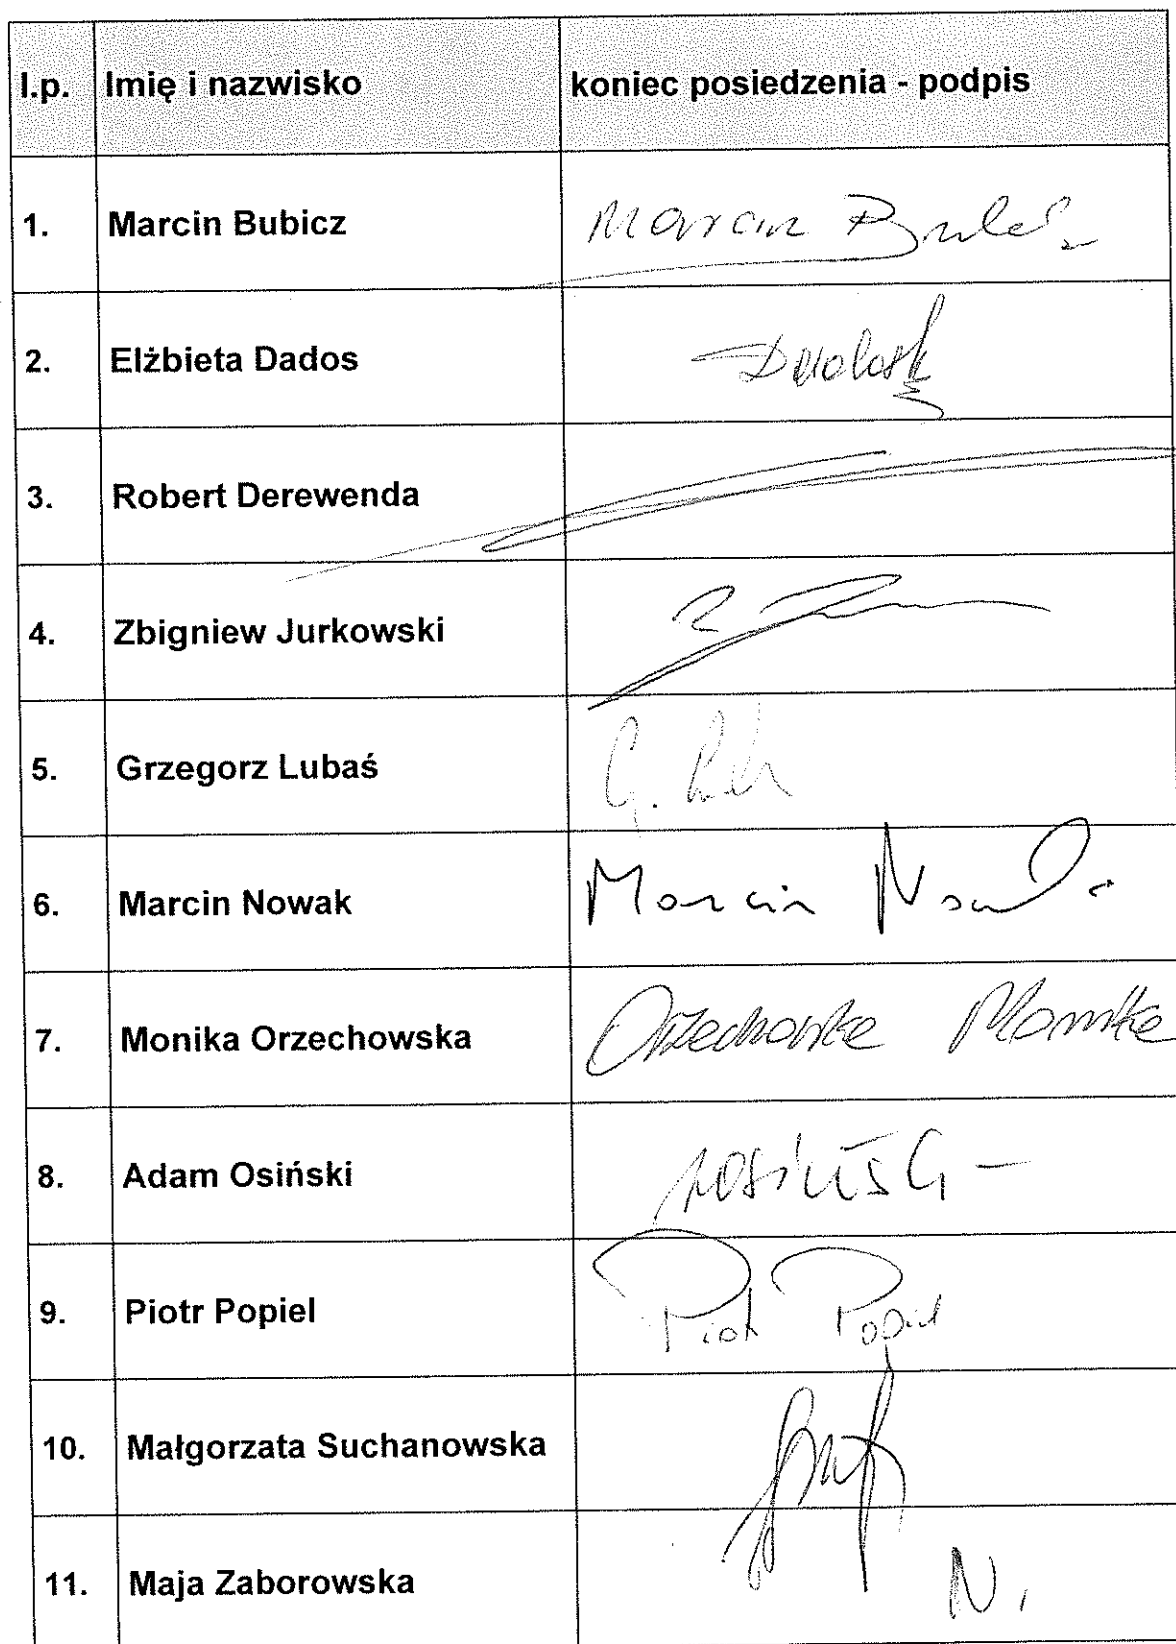 l.p. Imię i nazwisko koniec posiedzenia - podpis
1. Marcin Bubicz Marcin
2. Elżbieta Dados
3. Robert Derewenda
4. Zbigniew Jurkowski
5. Grzegorz Lubaś G.
6. Marcin Nowak Marcin Nowak
7. Monika Orzechowska Orzechowska Monika
8. Adam Osiński
9. Piotr Popiel Piotr Popiel
10. Małgorzata Suchanowska
11. Maja Zaborowska N.